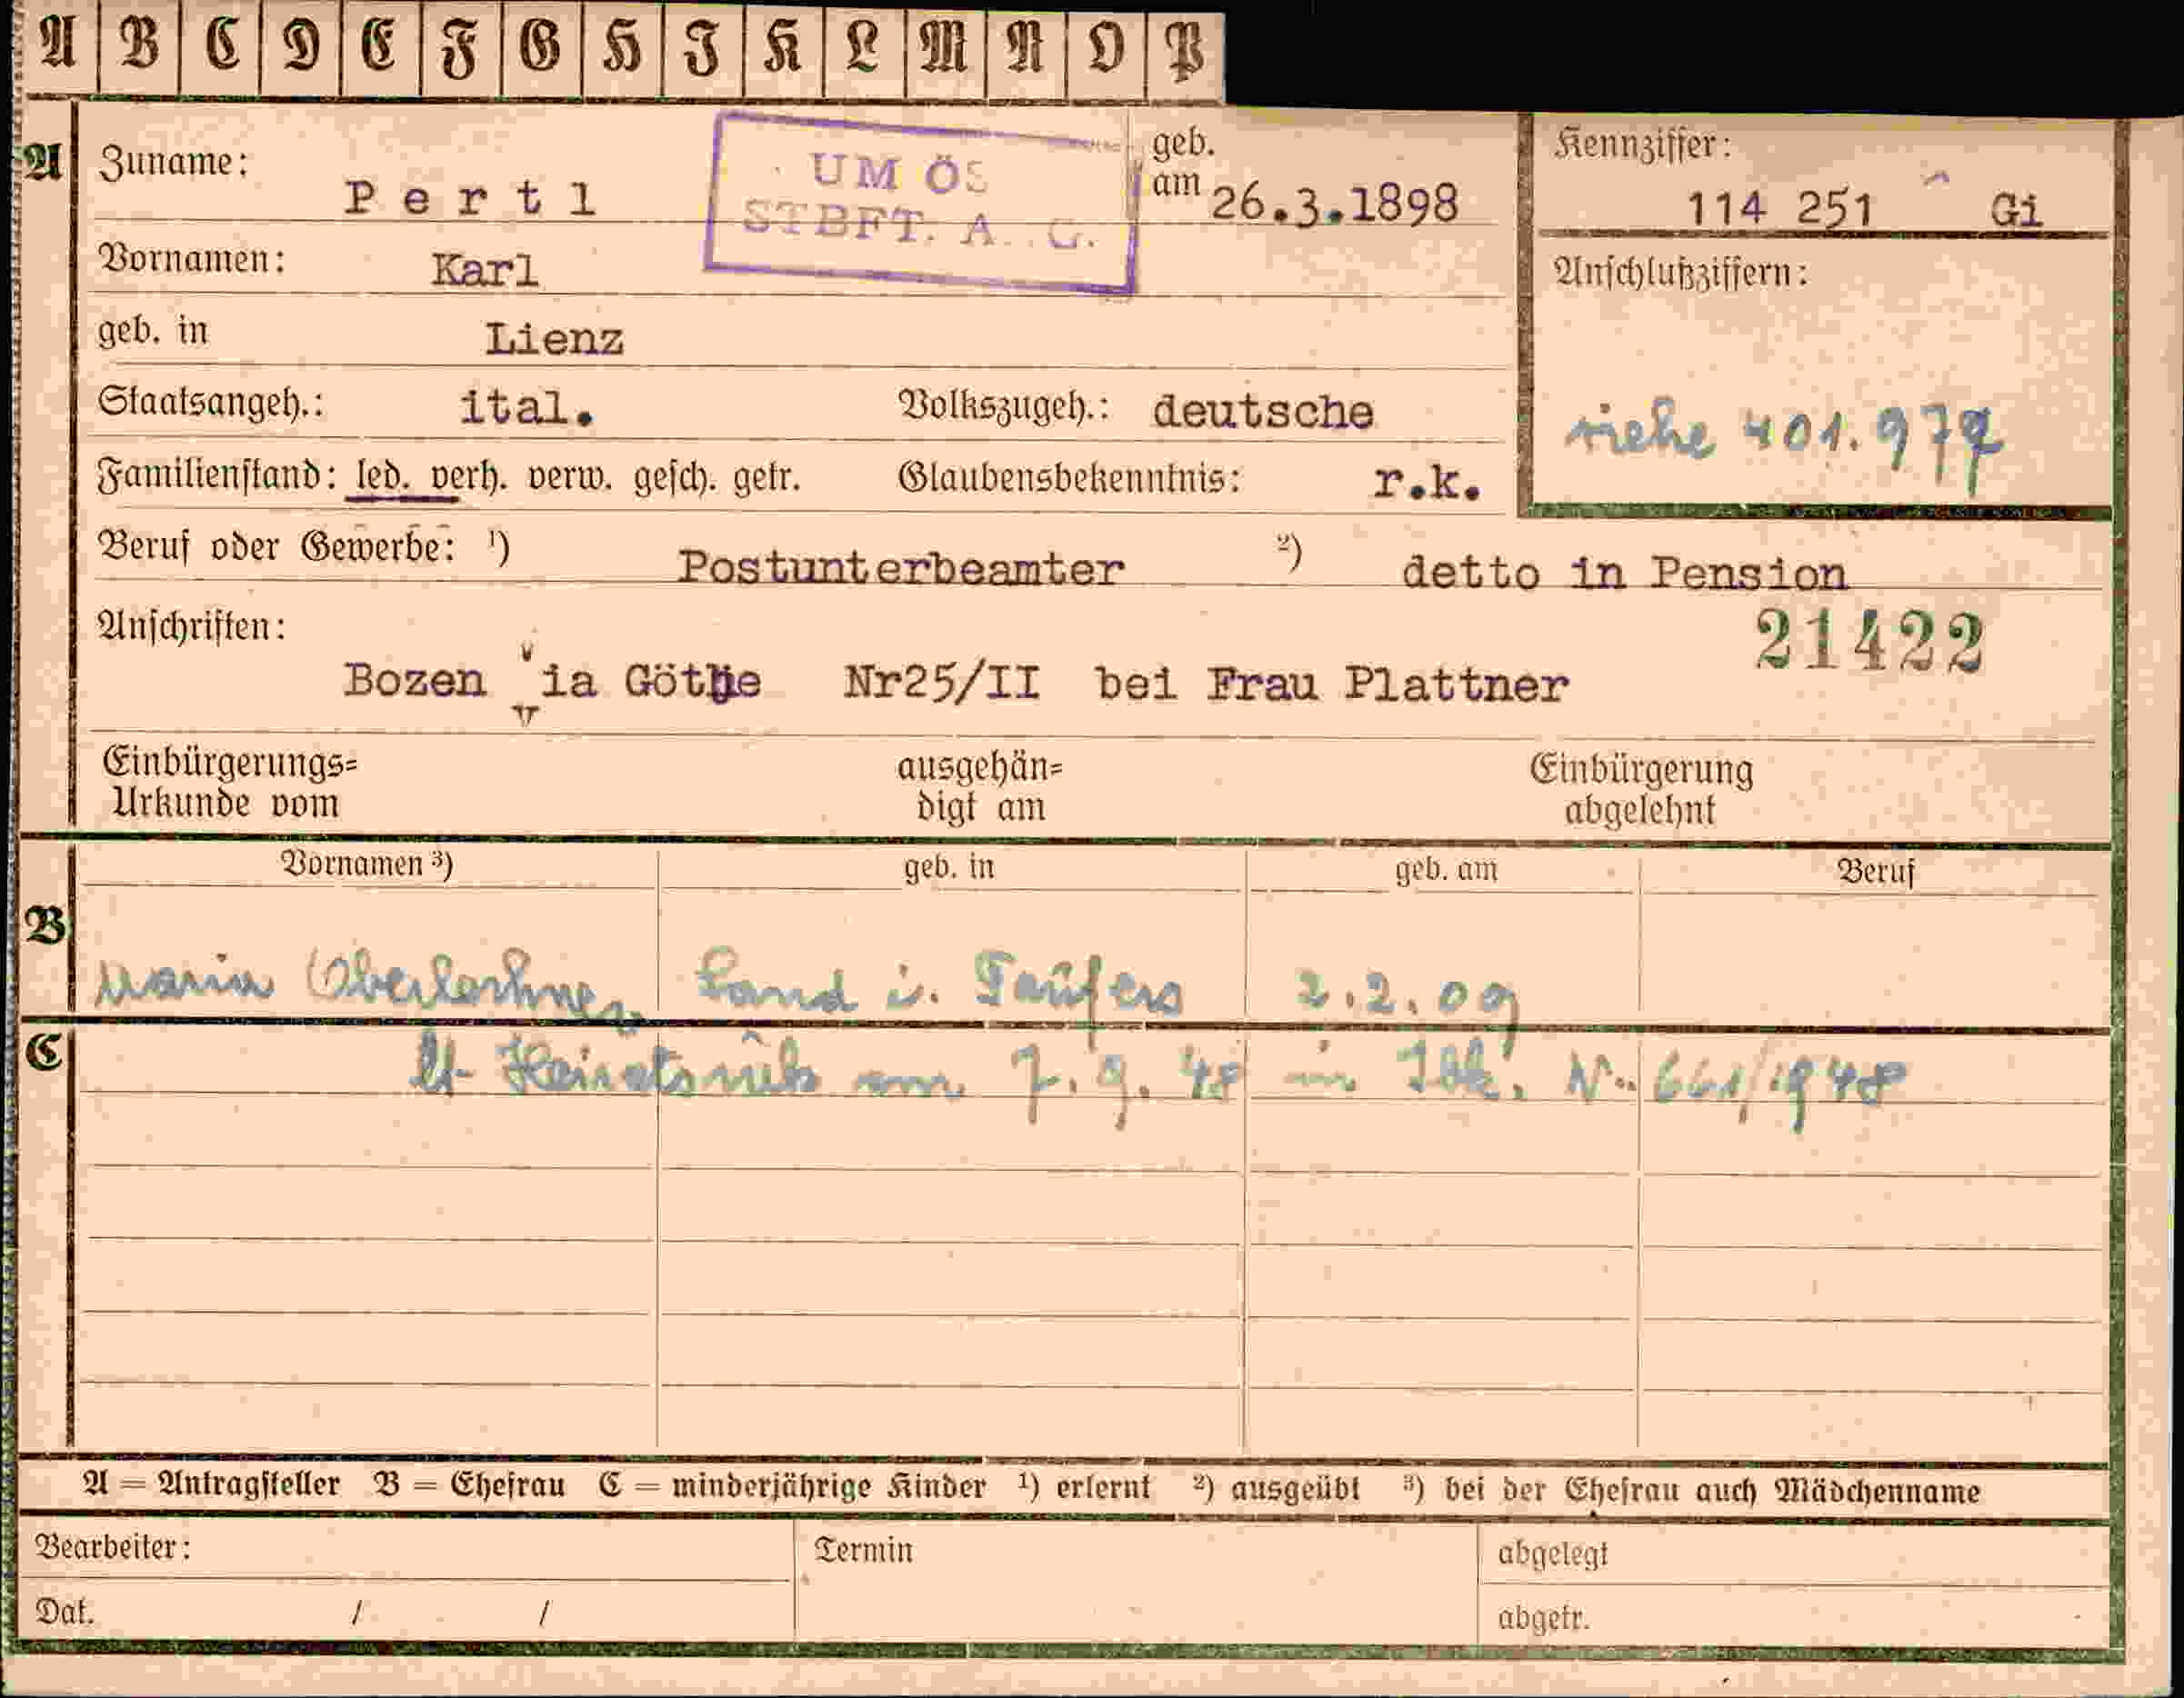 A B C D E F G H I K L M N O P
A Zuname: Pertl
UM ÖS
STBFT. A. G.
geb. am 26.3.1898
Kennziffer:
114 251 Gi
Vornamen: Karl
Anschlußziffern:
geb. in Lienz
Staatsangeh.: ital. Volkszugeh.: deutsche
siehe 401.977
Familienstand: led. verh. verw. gesch. getr. Glaubensbekenntnis: r.k.
Beruf oder Gewerbe: 1) Postunterbeamter 2) detto in Pension
21422
Anschriften:
Bozen via Göthe Nr25/II bei Frau Plattner
Einbürgerungs= ausgehän= Einbürgerung
Urkunde vom digt am abgelehnt
Vornamen 3) geb. in geb. am Beruf
B
Maria Oberlechner Sand i. Taufers 2.2.09
C
lt. Heiratsurk am 7.9.48 in Ibk. Nr. 661/1948
A = Antragsteller B = Ehefrau C = minderjährige Kinder 1) erlernt 2) ausgeübt 3) bei der Ehefrau auch Mädchenname
Bearbeiter: Termin abgelegt
Dat. / / abgetr.